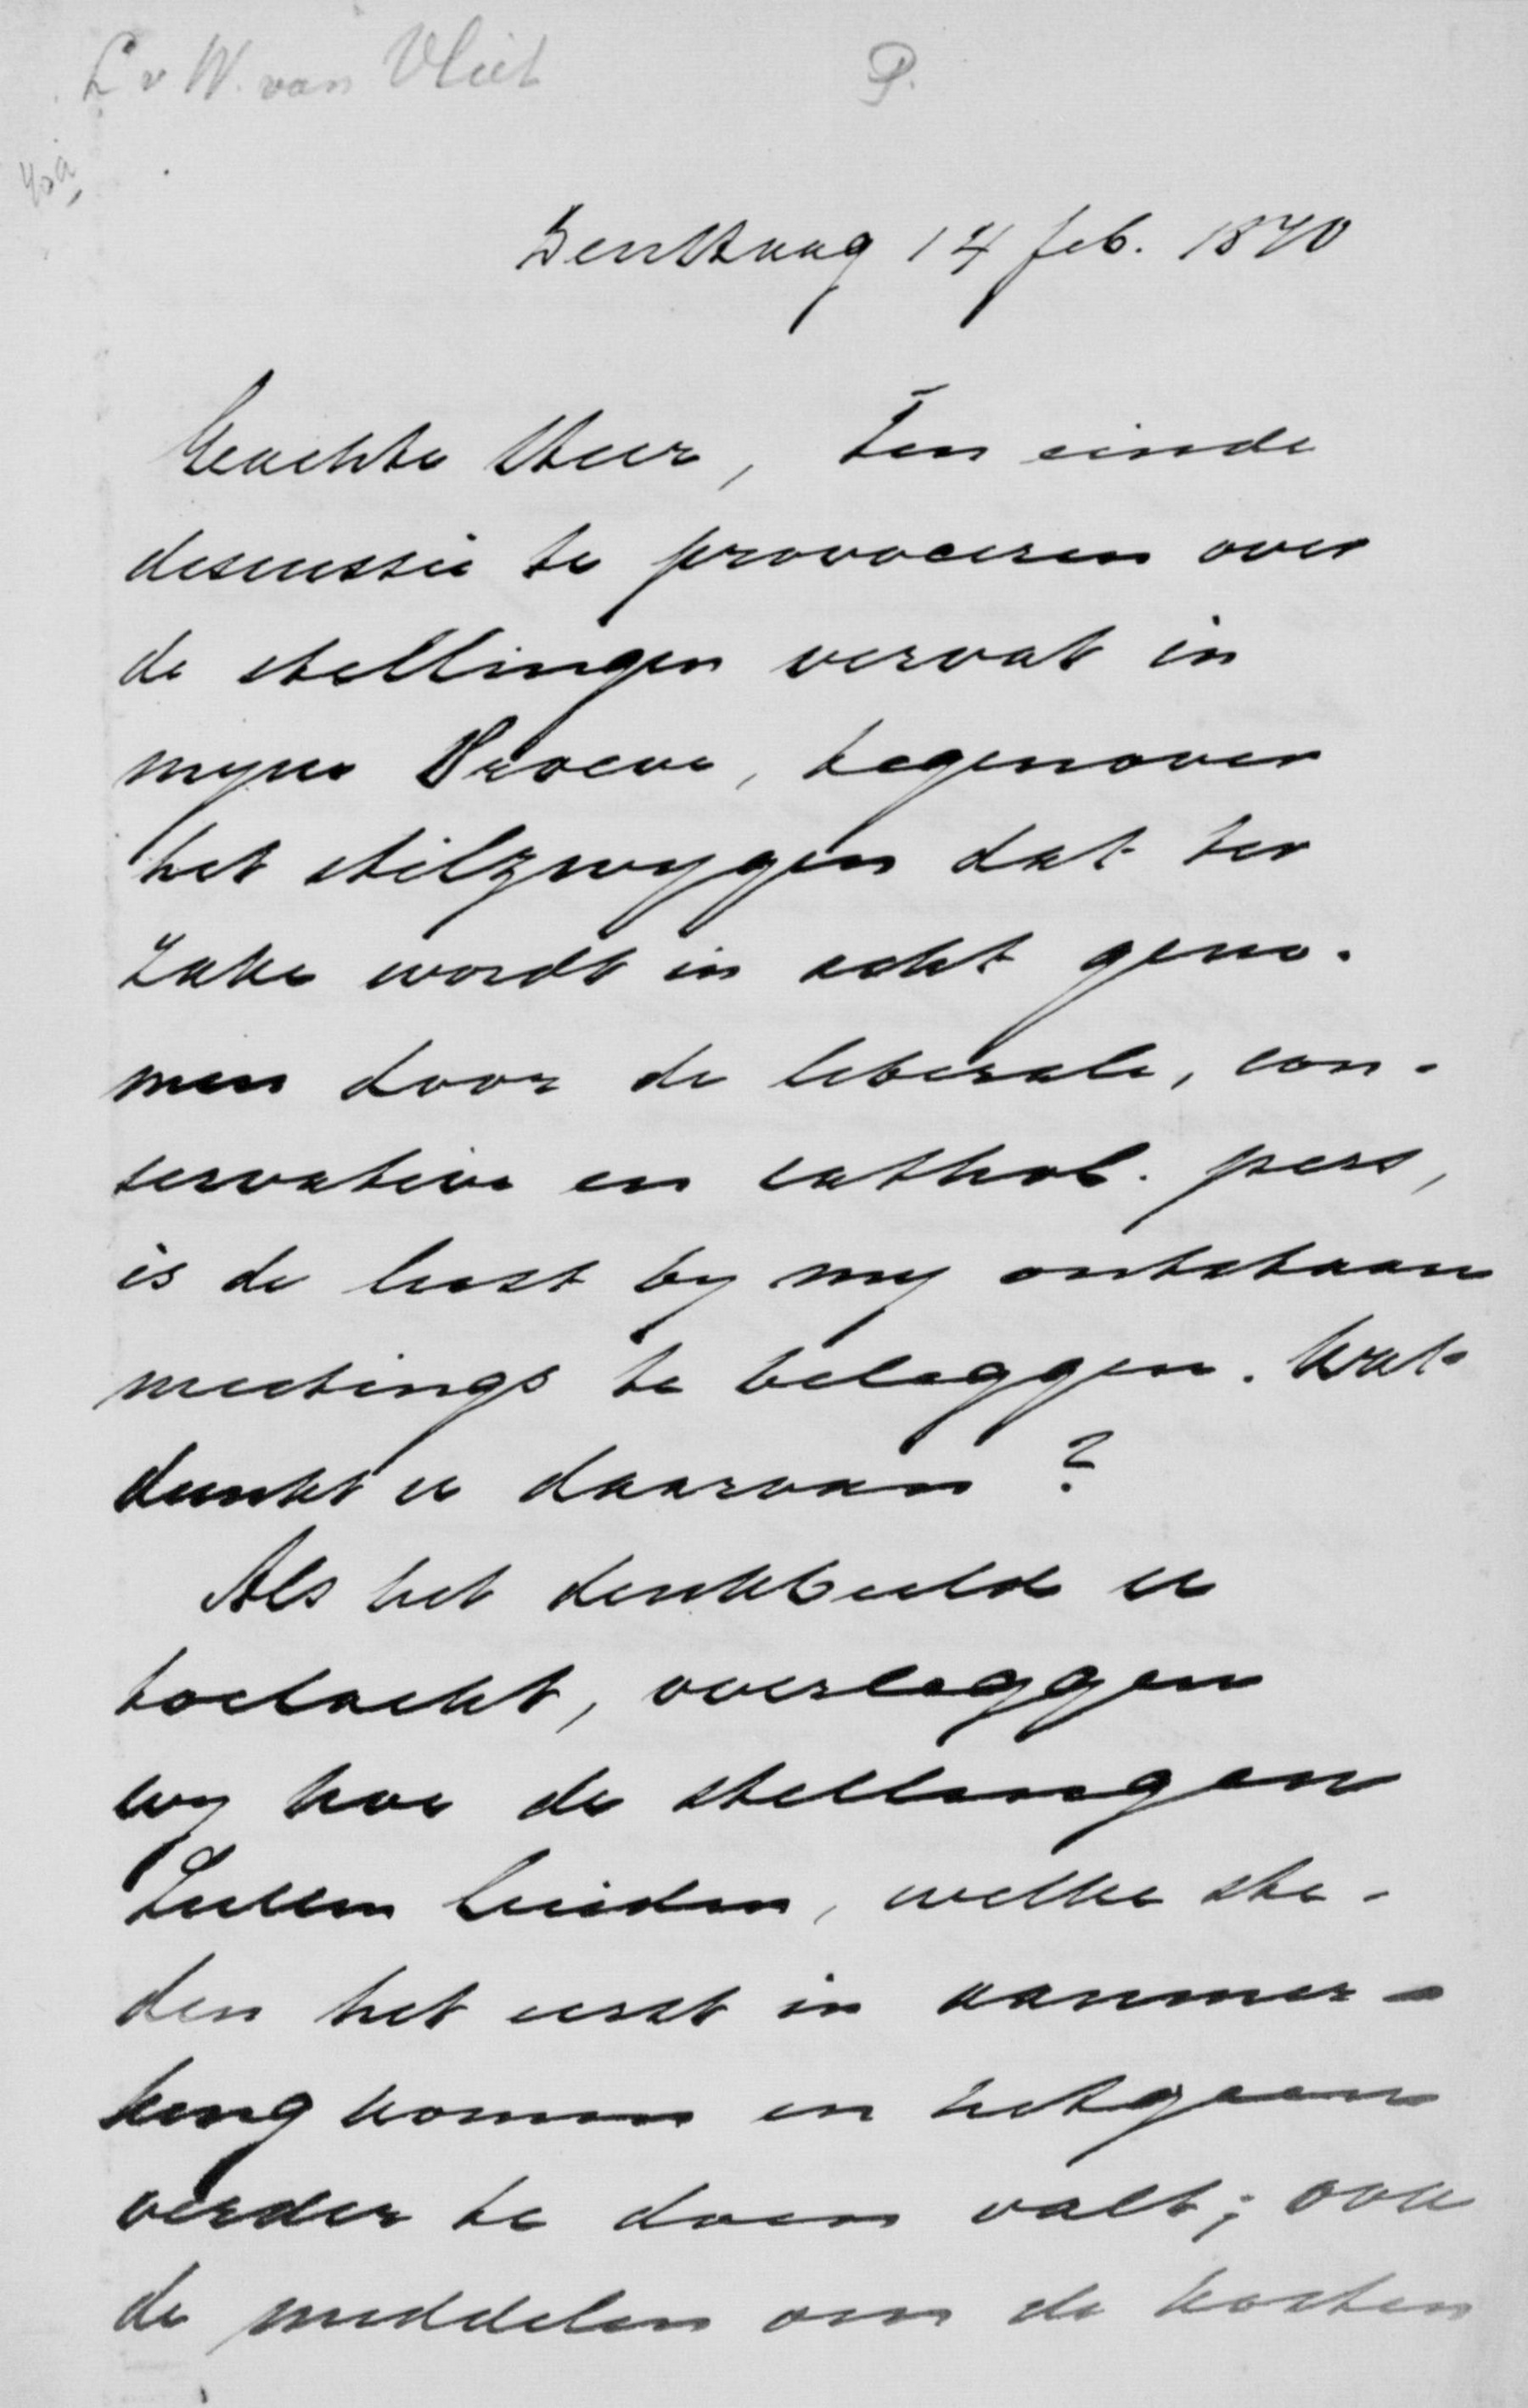 L v W. van Vliet P.
DenHaag 14 feb. 1870
Geachte Heer, Ten einde
descussie te provoceren over
de stellingen vervat in
myne Proeve, tegenover
het stilzwygen dat ter
zake wordt in acht geno-
men door de liberale, con-
servative en cathol. pers,
is de lust by my ontstaan
meetings te beleggen. Wat
dunkt u daarvan?
Als het denkbeeld u
toelacht, overleggen
wy hoe de stellingen
zullen luiden, welke ste-
den het eerst in aanmer-
king komen en hetgeen
verder te doen valt; ook
de middelen om de kosten